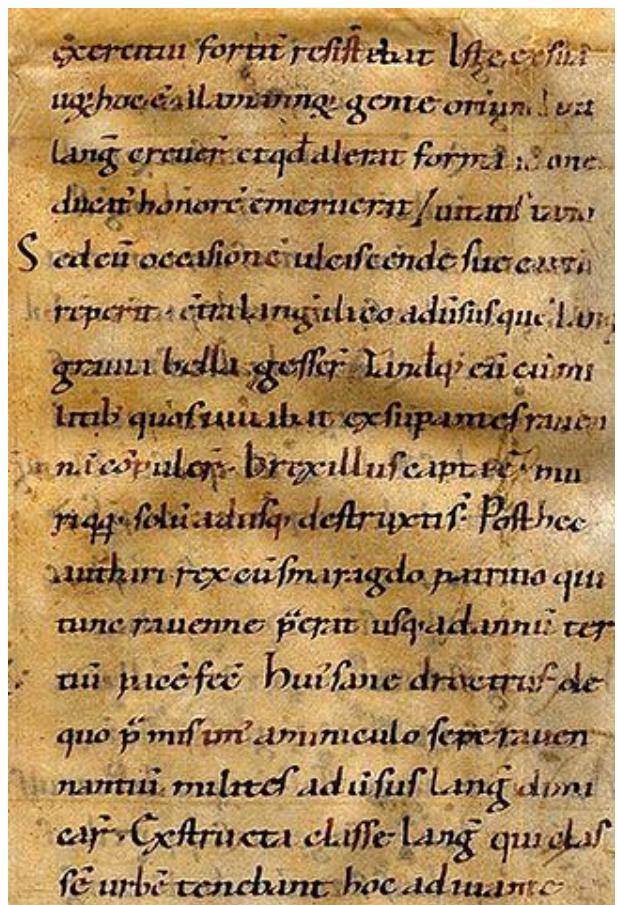 exercitui fortit̄ resist̄ebat Iste ex sua
uoꝝ hoc ē alamannoꝝ gente oriun
lang̃ creuer̄ et qđ alerat forma
ducat᷒ honorē emeruerat
Sed cū occasionē ulciscende sue
reperit c̄tra lang̃ ilico aduisusque lang̃
grauia bella gesser̄ Tandẽq; eū cū mi
litib᷒ quos iuuabat exsupantes rauen
nā cōpuler̄ brexillus capt ē mu
riqꝗ solū adusq; destructi s̄ Post hec
authari rex cū smaragdo patritio qui
tunc rauenne p̄erat usq; ad annū ter
tiū pacē fec̄ hui᷒ sane droctrulf de
quo p̄misim᷒ aminiculo sepe rauen
nantiū milites aduisus lang̃ dimi
car̄ Exstructa classe lang̃ qui clas
sē urbē tenebant hoc adiuuante